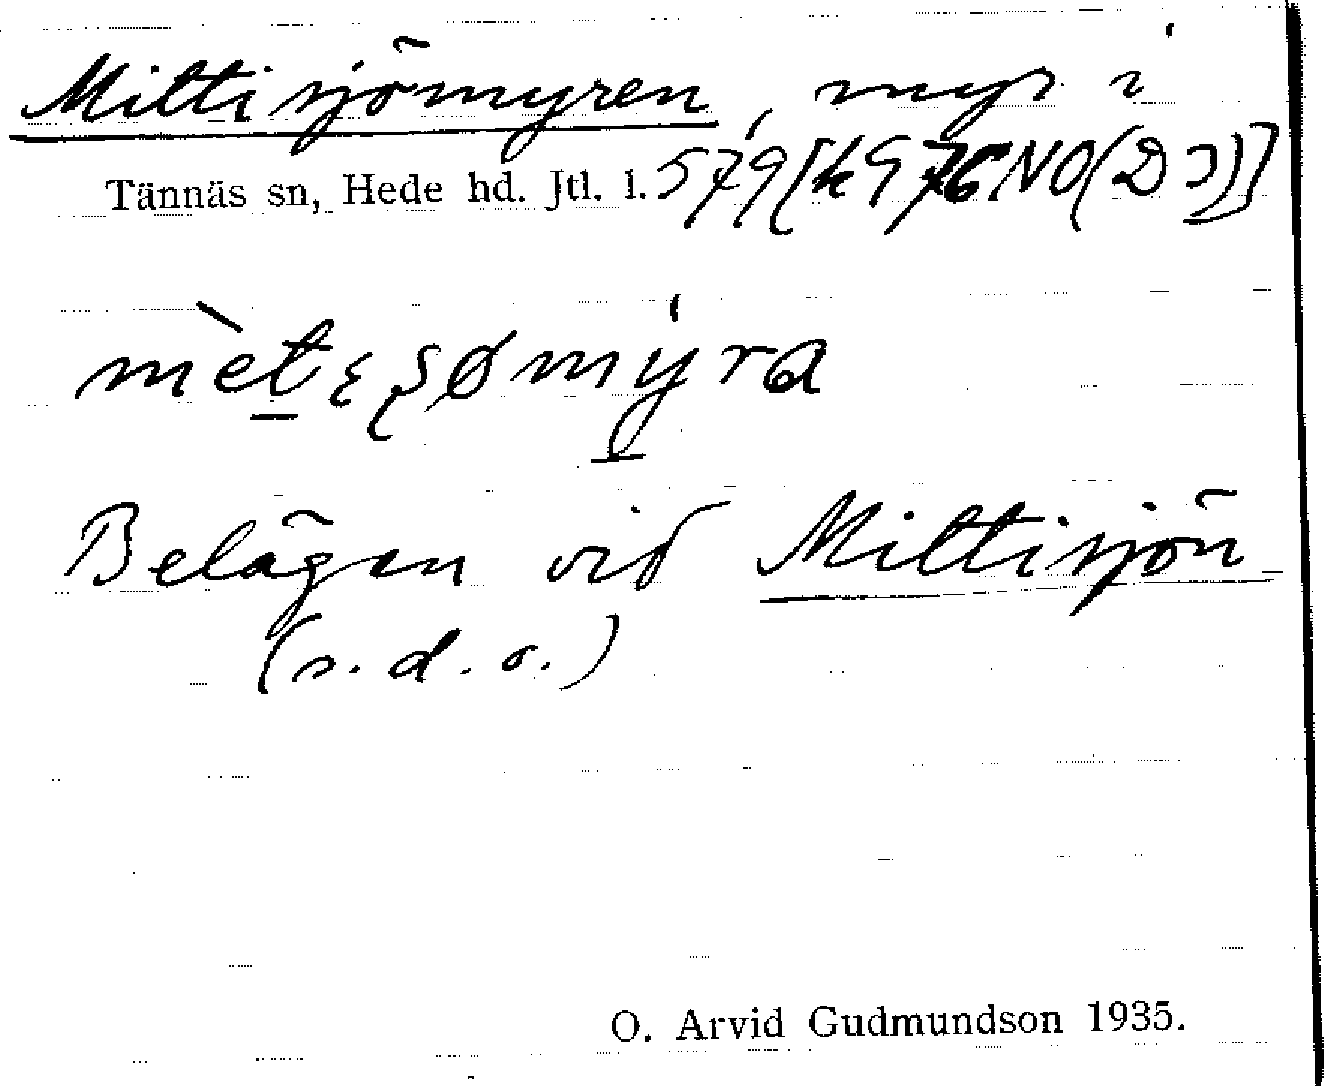 Mittisjömyren, myr i
Tännäs sn, Hede hd. Jtl. l. 579 [k976NO(D3)]
Belägen vid Mittisjön
(s.d.o.)
O. Arvid Gudmundson 1935.